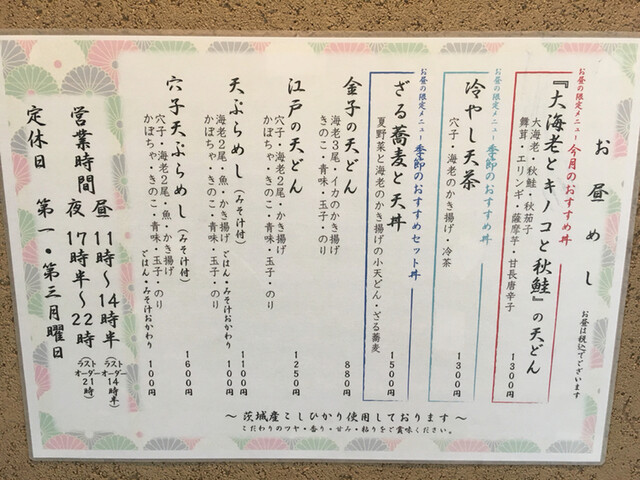 お昼めし
お昼は税込でございます
お昼の限定メニュー 今月のおすすめ丼
『大海老とキノコと秋鮭』の天どん
大海老・秋鮭・秋茄子
舞茸・エリンギ・薩摩芋・甘長唐辛子
1300円
お昼の限定メニュー 季節のおすすめ丼
冷やし天茶
穴子・海老のかき揚げ・冷茶
1300円
お昼の限定メニュー 季節のおすすめセット丼
ざる蕎麦と天丼
夏野菜と海老のかき揚げの小天どん・ざる蕎麦
1500円
金子の天どん
海老3尾・イカのかき揚げ
きのこ・青味・玉子・のり
880円
江戸の天どん
穴子・海老2尾・かき揚げ
かぼちゃ・きのこ・青味・玉子・のり
1250円
天ぷらめし(みそ汁付)
海老2尾・魚・かき揚げ
かぼちゃ・きのこ・青味・玉子・のり
1100円
ごはん・みそ汁おかわり 100円
穴子天ぷらめし(みそ汁付)
穴子・海老2尾・魚・かき揚げ
かぼちゃ・きのこ・青味・玉子・のり
1600円
ごはん・みそ汁おかわり 100円
営業時間 昼 11時〜14時半(ラストオーダー14時半)
夜 17時半〜22時(ラストオーダー21時)
定休日 第一・第三月曜日
〜茨城産こしひかり使用しております〜
こだわりのツヤ・香り・甘み・粘りをご賞味ください。